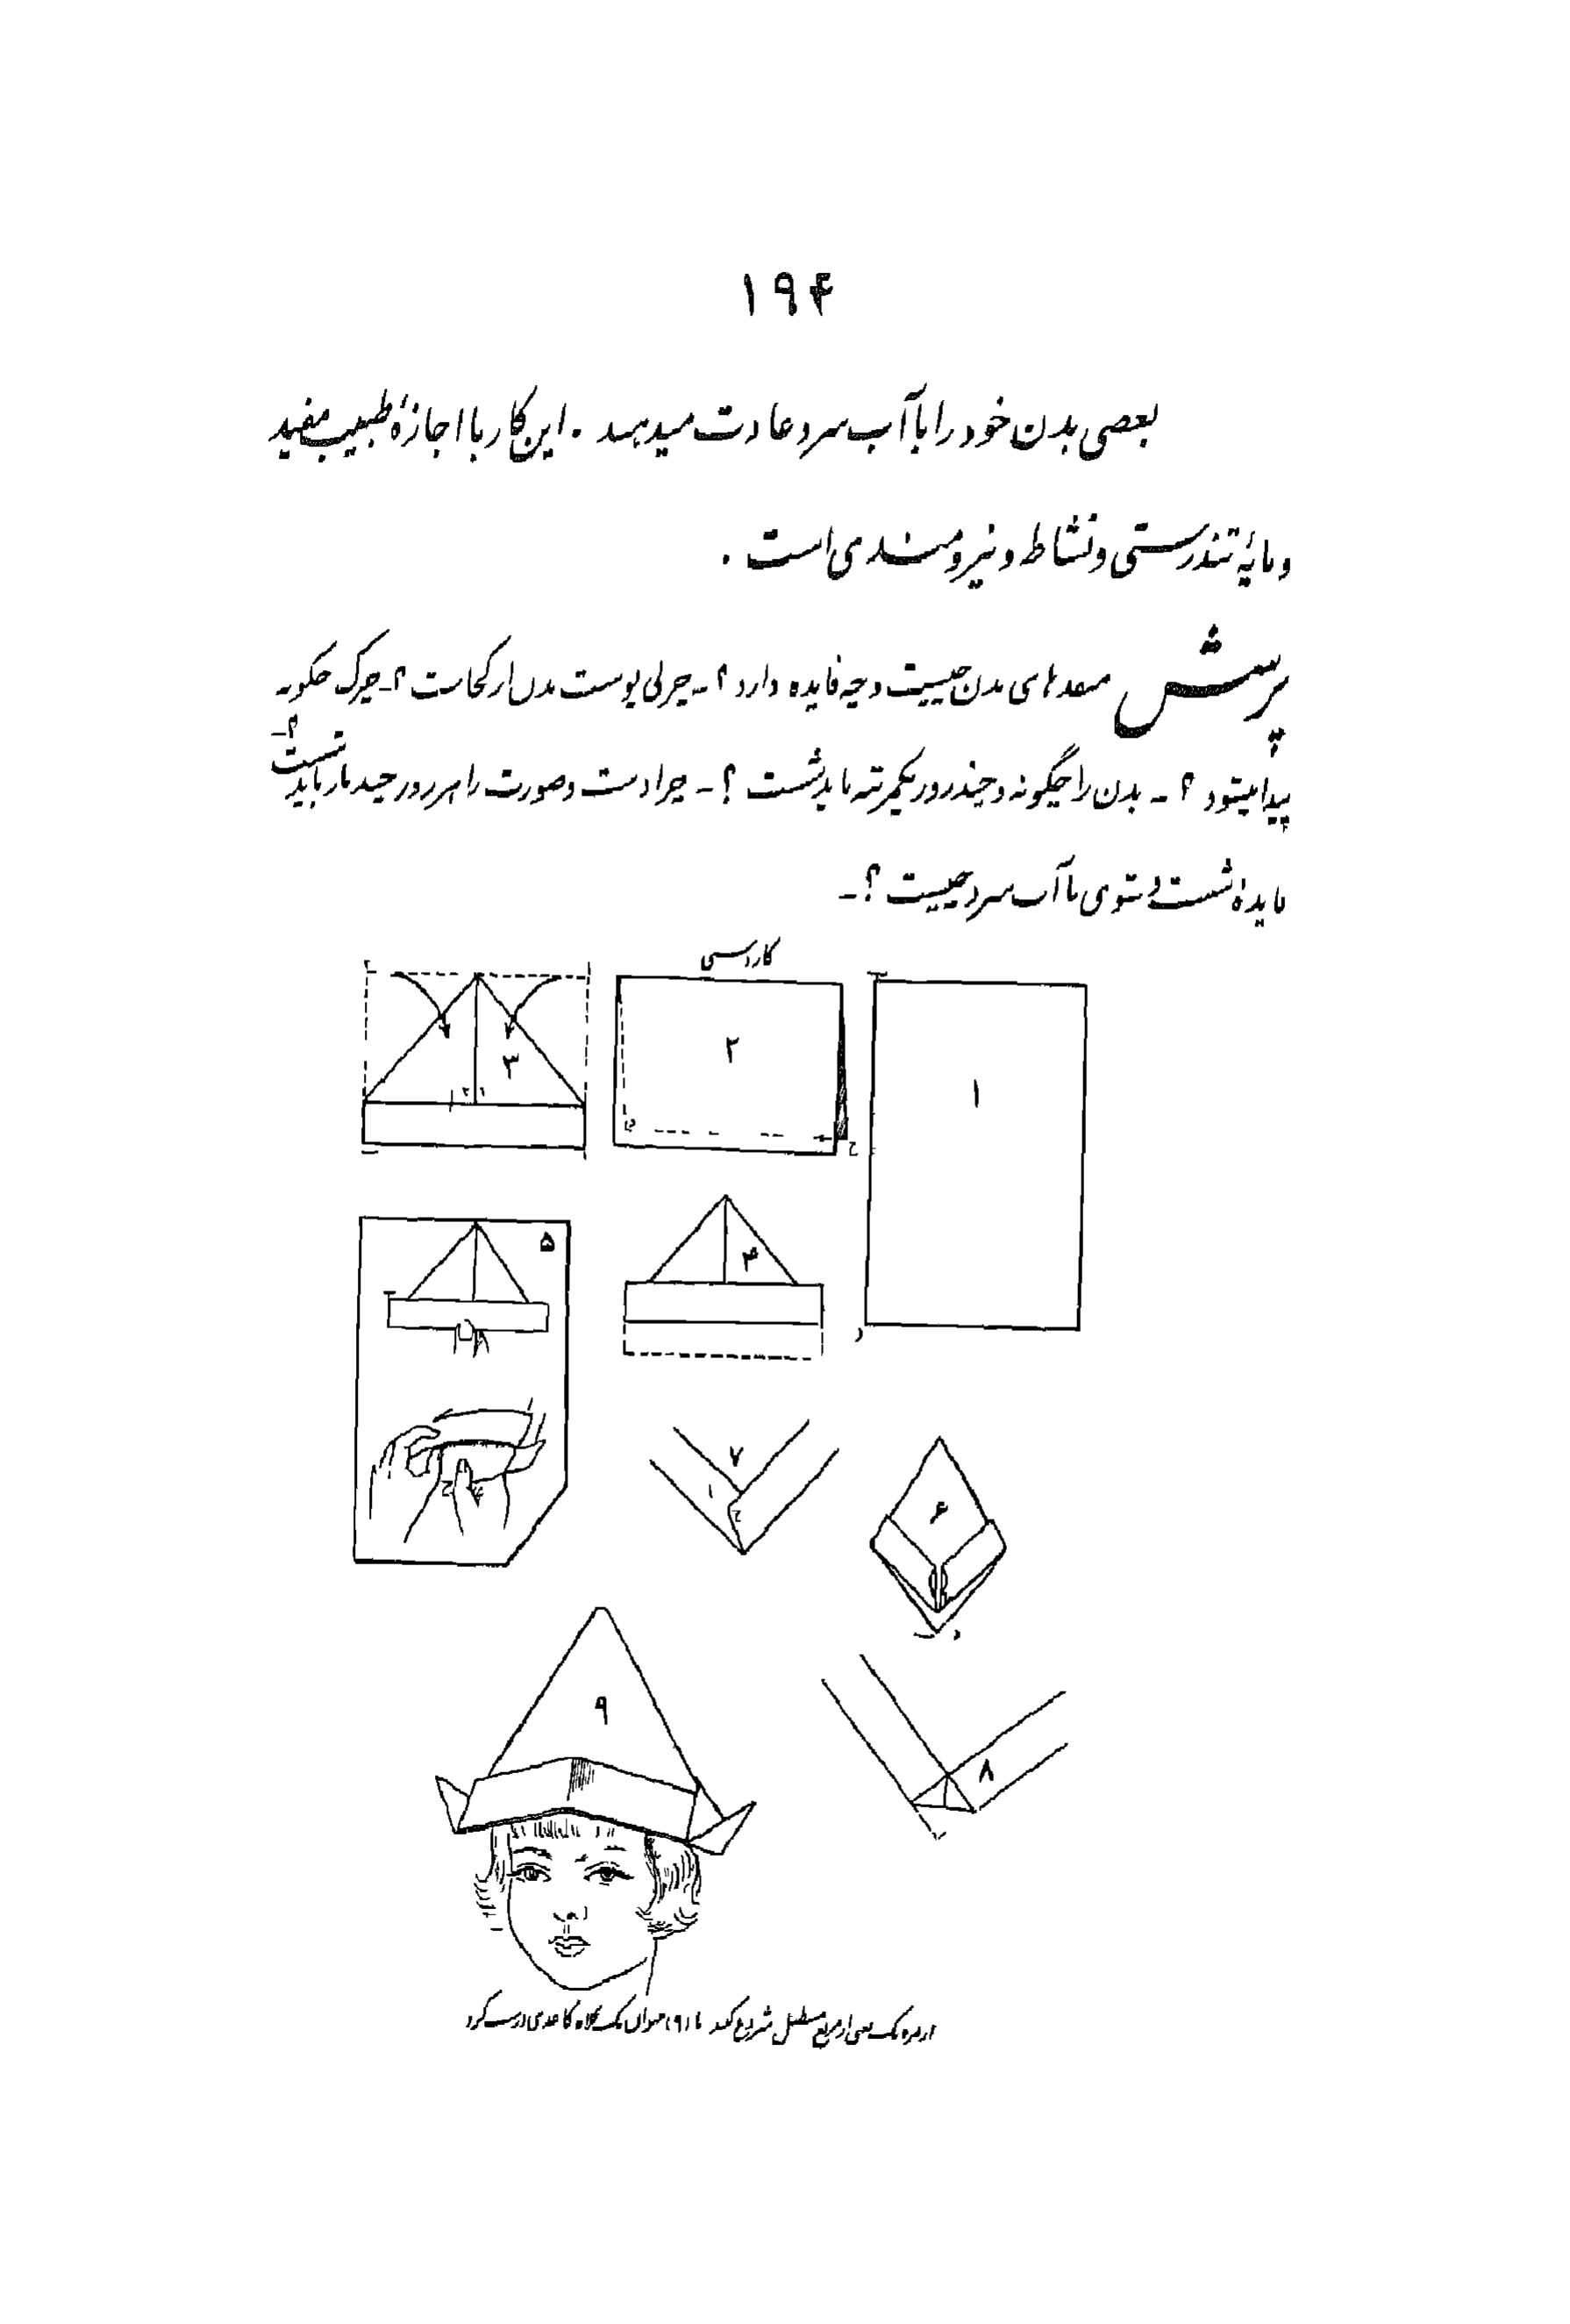 ۱۹۴
بعضی بدن خود را با آب سرد عادت میدهند . این کار با اجازهٔ طبیب مفید
و مایهٔ تندرستی و نشاط و نیرومندی است .
پرسش منفذهای بدن چیست و چه فایده دارد ؟ - چربی پوست بدن از کجاست ؟ - چرک چگونه
پیدا میشود ؟ - بدن را چگونه و چند روز یکمرتبه باید شست ؟ - چرا دست و صورت را هر روز چند بار باید شست ؟ -
فایدهٔ شست و شوی با آب سرد چیست ؟ -
کاردستی
۳ ۲ ۱
۵ ۴
۷ ۶
۹ ۸
از نمره یک یعنی از مربع مستطیل شروع کنید تا (۹) میتوان یک کلاه کاغذی درست کرد